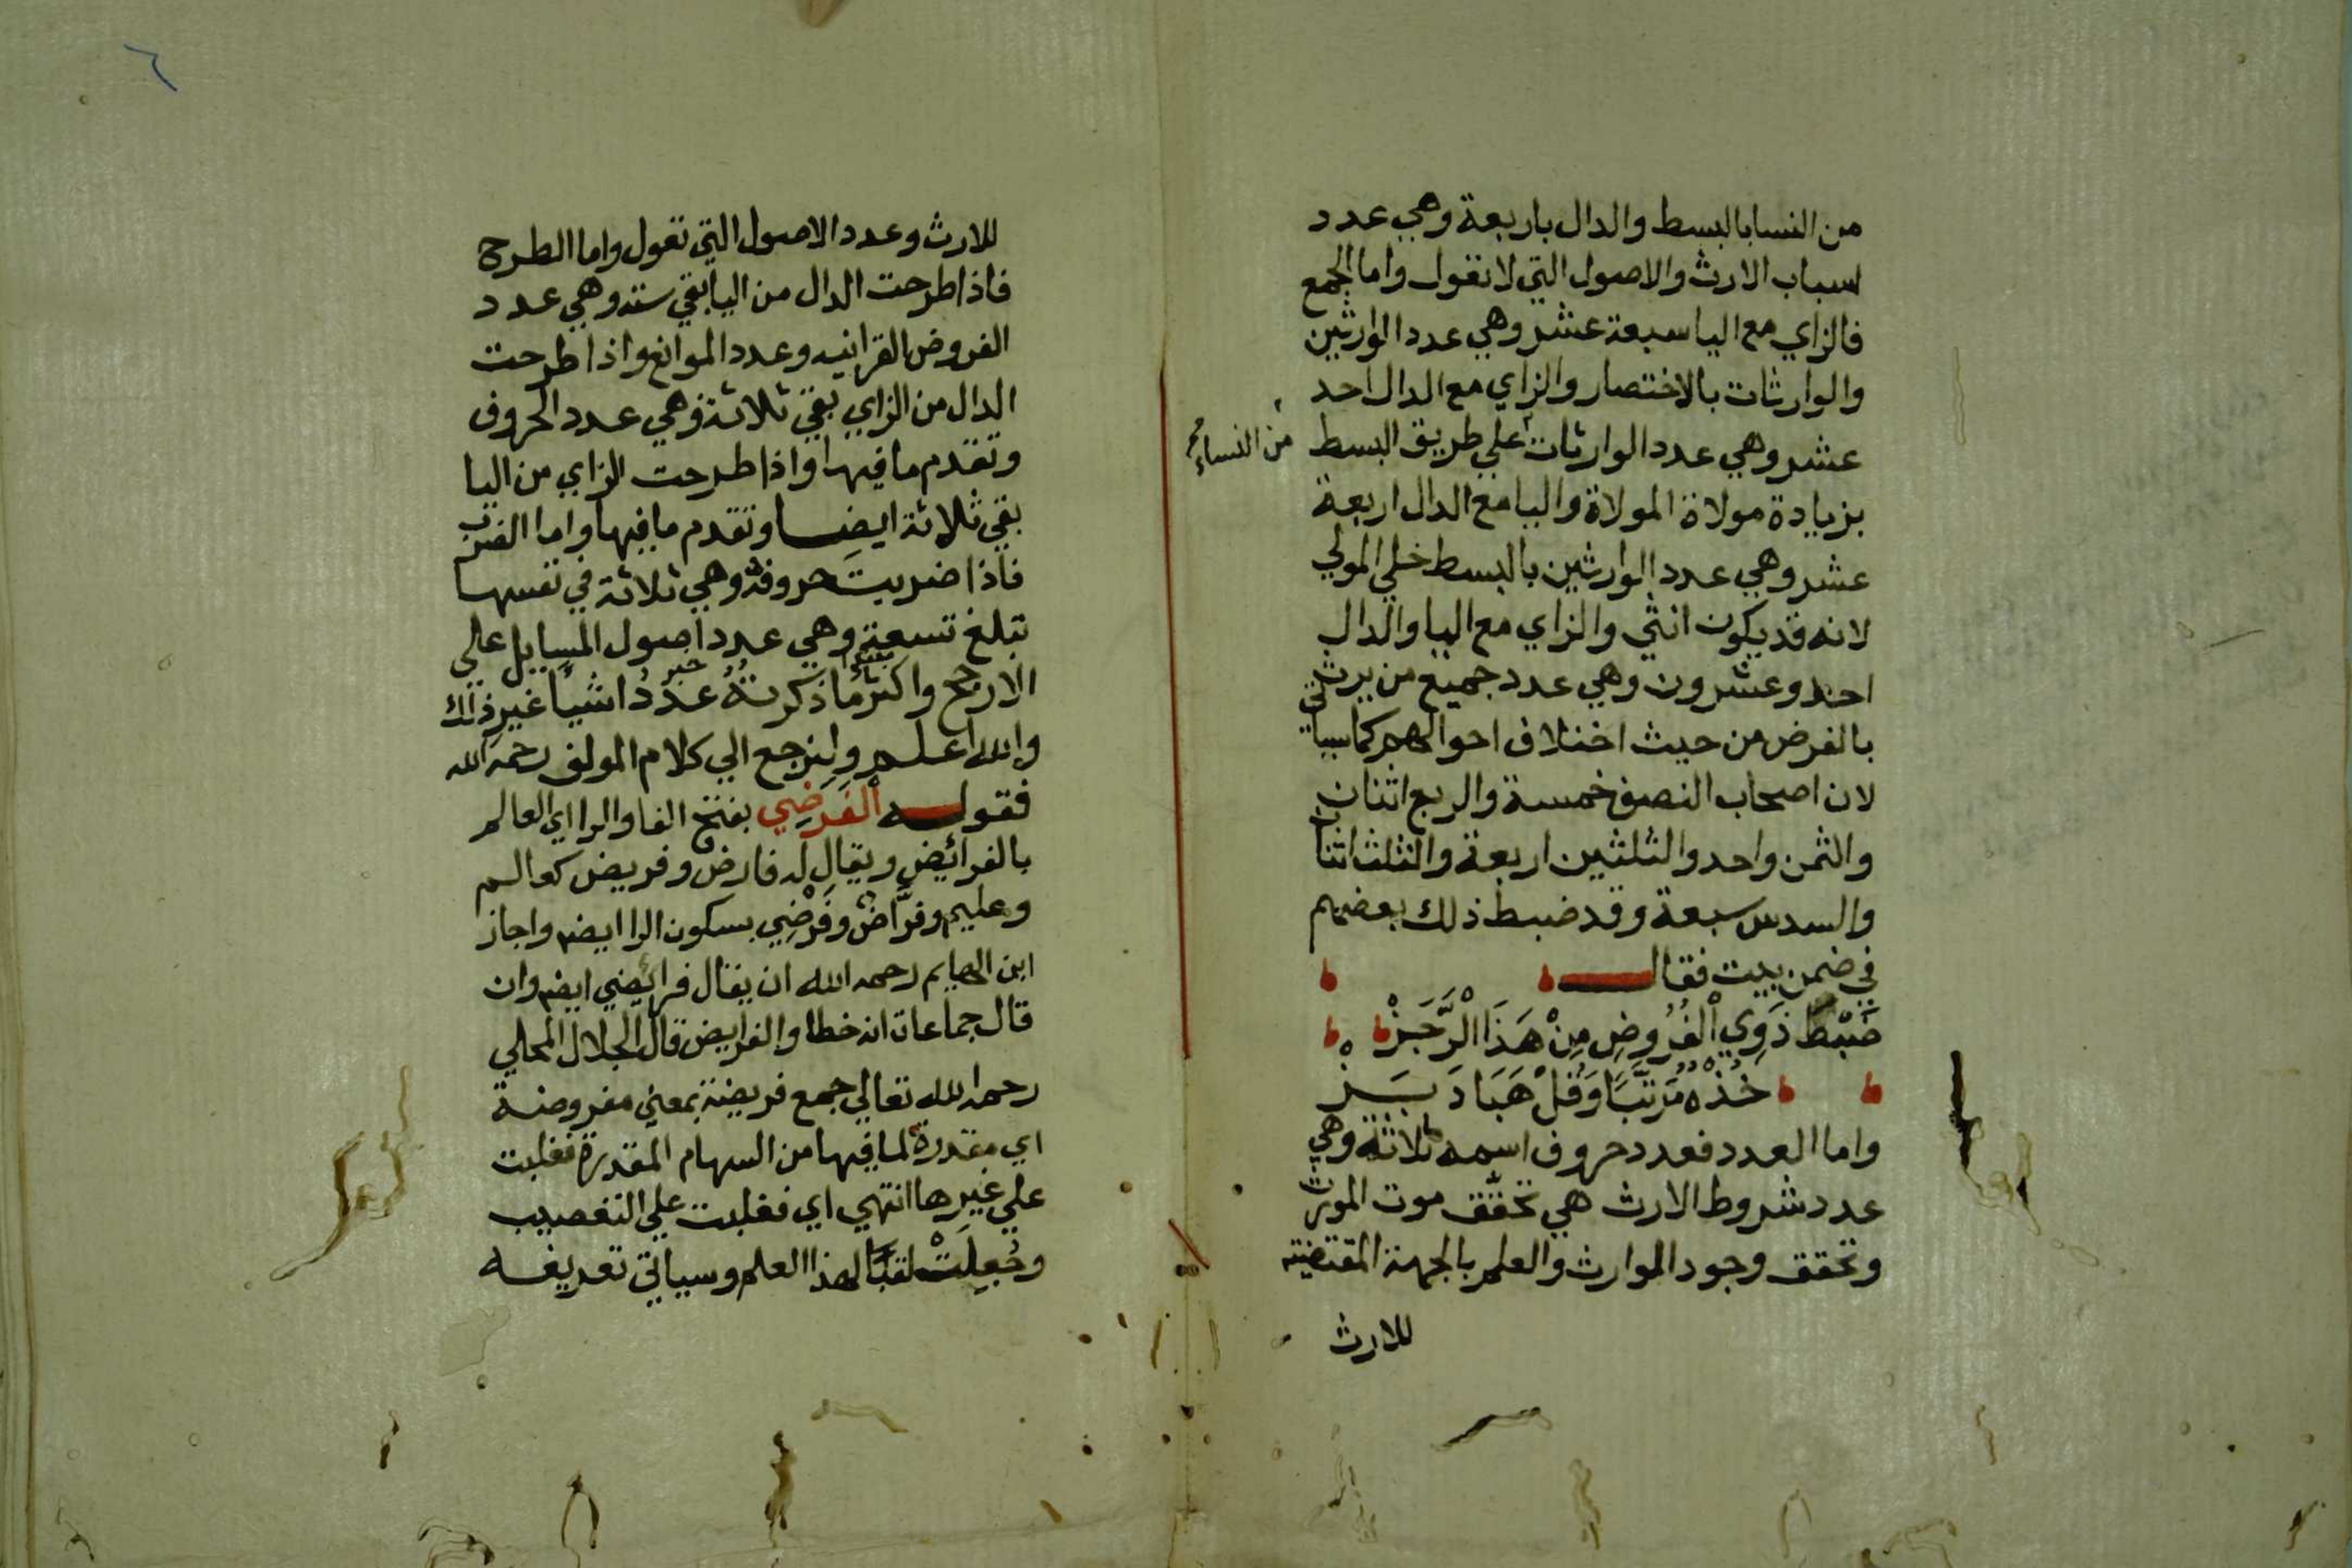 من النسا بالبسط والدال باربعة وهي عدد
اسباب الارث والاصول التي لا تعول واما الجمع
فالزاي مع اليا سبعة عشر وهي عدد الوارثين
والوارثات بالاختصار والزاي مع الدال احد
عشر وهي عدد الوارثات علي طريق البسط
من النساء
بزيادة مولاة المولاة واليا مع الدال اربعة
عشر وهي عدد الوارثين بالبسط خلي المولي
لانه قد يكون انثي والزاي مع اليا والدال
احد وعشرون وهي عدد جميع من يرث
بالفرض من حيث اختلاف احوالهم كما سياتي
لان اصحاب النصف خمسة والربع اثنان
والثمن واحد والثلثين اربعة والثلث اثنان
والسدس سبعة وقد ضبط ذلك بعضهم
في ضمن بيت فقال
ضَبْطَ ذَوِي الْفُرُوضِ مِنْ هَذَا الرَّجَزْ
خُذْهُ مُرَتَّبًا وَقُلْ هَبَا دَبَزْ
واما العدد فعدد حروف اسمه ثلاثة وهي
عدد شروط الارث هي تحقق موت المورث
وتحقق وجود الموارث والعلم بالجهة المقتضية
للارث
٦
للارث وعدد الاصول التي تعول واما الطرح
فاذا طرحت الدال من اليا بقي ستة وهي عدد
الفروض القرانيه وعدد الموانع واذا طرحت
الدال من الزاي بقي ثلاثة وهي عدد الحروف
وتقدم ما فيها واذا طرحت الزاي من اليا
بقي ثلاثة ايضا وتقدم ما فيها واما الضرب
فاذا ضربت حروفه وهي ثلاثة في نفسها
تبلغ تسعة وهي عدد اصول المسايل علي
الارجح واكثر ما ذكرته عدد اشيا غير ذلك
والله اعلم ولنرجع الي كلام المولف رحمه الله
فقوله الْفَرَضِي بفتح الفا والرا اي العالم
بالفرائض ويقال له فارض وفريض كعالم
وعليم وفرَّاض وفَرْضِي بسكون الرا ايضا واجاز
ابن الهايم رحمه الله ان يقال فرائضي ايضا وان
قال جماعات انه خطا والفرايض قال الجلال المحلي
رحمه الله تعالي جمع فريضة بمعني مفروضة
اي مقدرة لما فيها من السهام المقدرة فغلبت
علي غيرها انتهي اي فغلبت علي التعصيب
وجُعِلَتْ لقبًا لهذا العلم وسياتي تعريفه